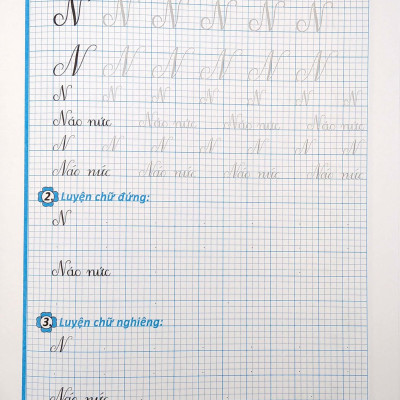 N N N N N N
N N N N N N
N N N N N N N
Náo nức Náo nức Náo nức Náo nức
N N N N N N N
Náo nức Náo nức Náo nức Náo nức
2. Luyện chữ đứng:
N
Náo nức
3. Luyện chữ nghiêng:
N
Náo nức